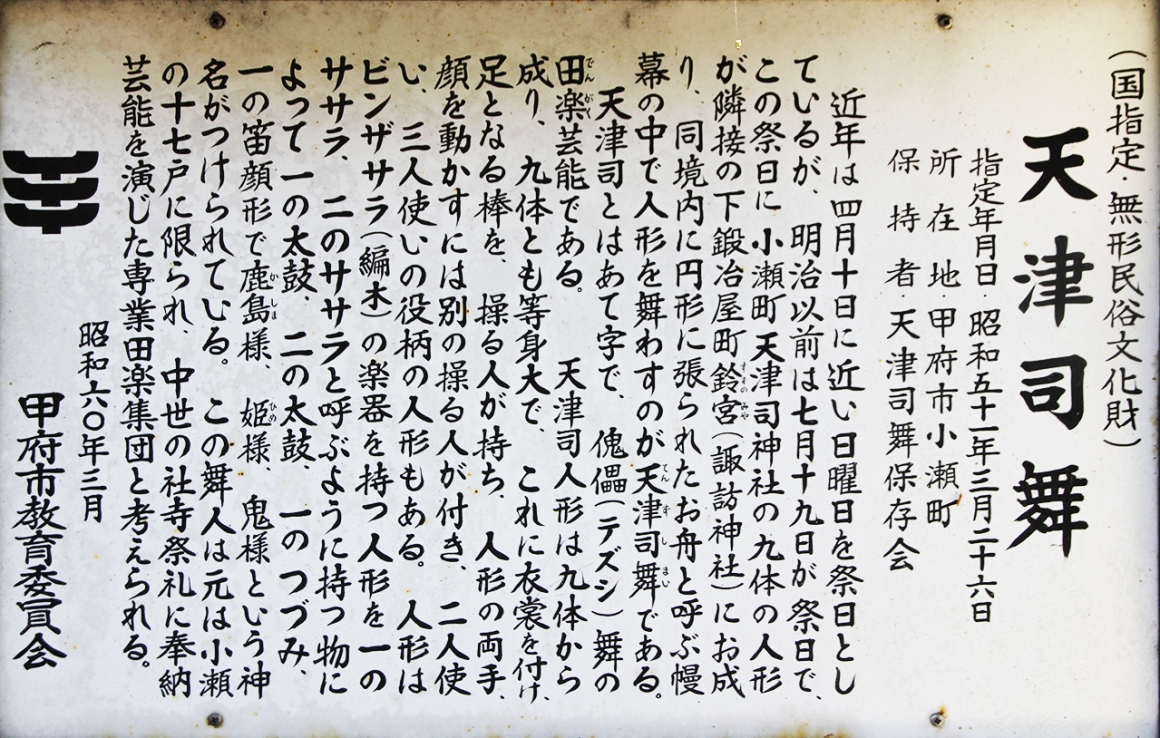 (国指定・無形民俗文化財)
天津司舞
指定年月日・昭和五十一年三月二十六日
所在地・甲府市小瀬町
保持者・天津司舞保存会
近年は四月十日に近い日曜日を祭日とし
ているが、明治以前は七月十九日が祭日で、
この祭日に小瀬町天津司神社の九体の人形
が隣接の下鍛冶屋町鈴宮(諏訪神社)にお成
り、同境内に円形に張られたお舟と呼ぶ幔
幕の中で人形を舞わすのが天津司舞である。
天津司とはあて字で、傀儡(テズシ)舞の
田楽芸能である。天津司人形は九体から
成り、九体とも等身大で、これに衣裳を付け、
足となる棒を、操る人が持ち、人形の両手、
顔を動かすには別の操る人が付き、二人使
い、三人使いの役柄の人形もある。人形は
ビンザサラ(編木)の楽器を持つ人形を一の
ササラ、二のササラと呼ぶように持つ物に
よって一の太鼓、二の太鼓、一のつづみ、
一の笛顔形で鹿島様、姫様、鬼様という神
名がつけられている。この舞人は元は小瀬
の十七戸に限られ、中世の社寺祭礼に奉納
芸能を演じた専業田楽集団と考えられる。
昭和六〇年三月
甲府市教育委員会